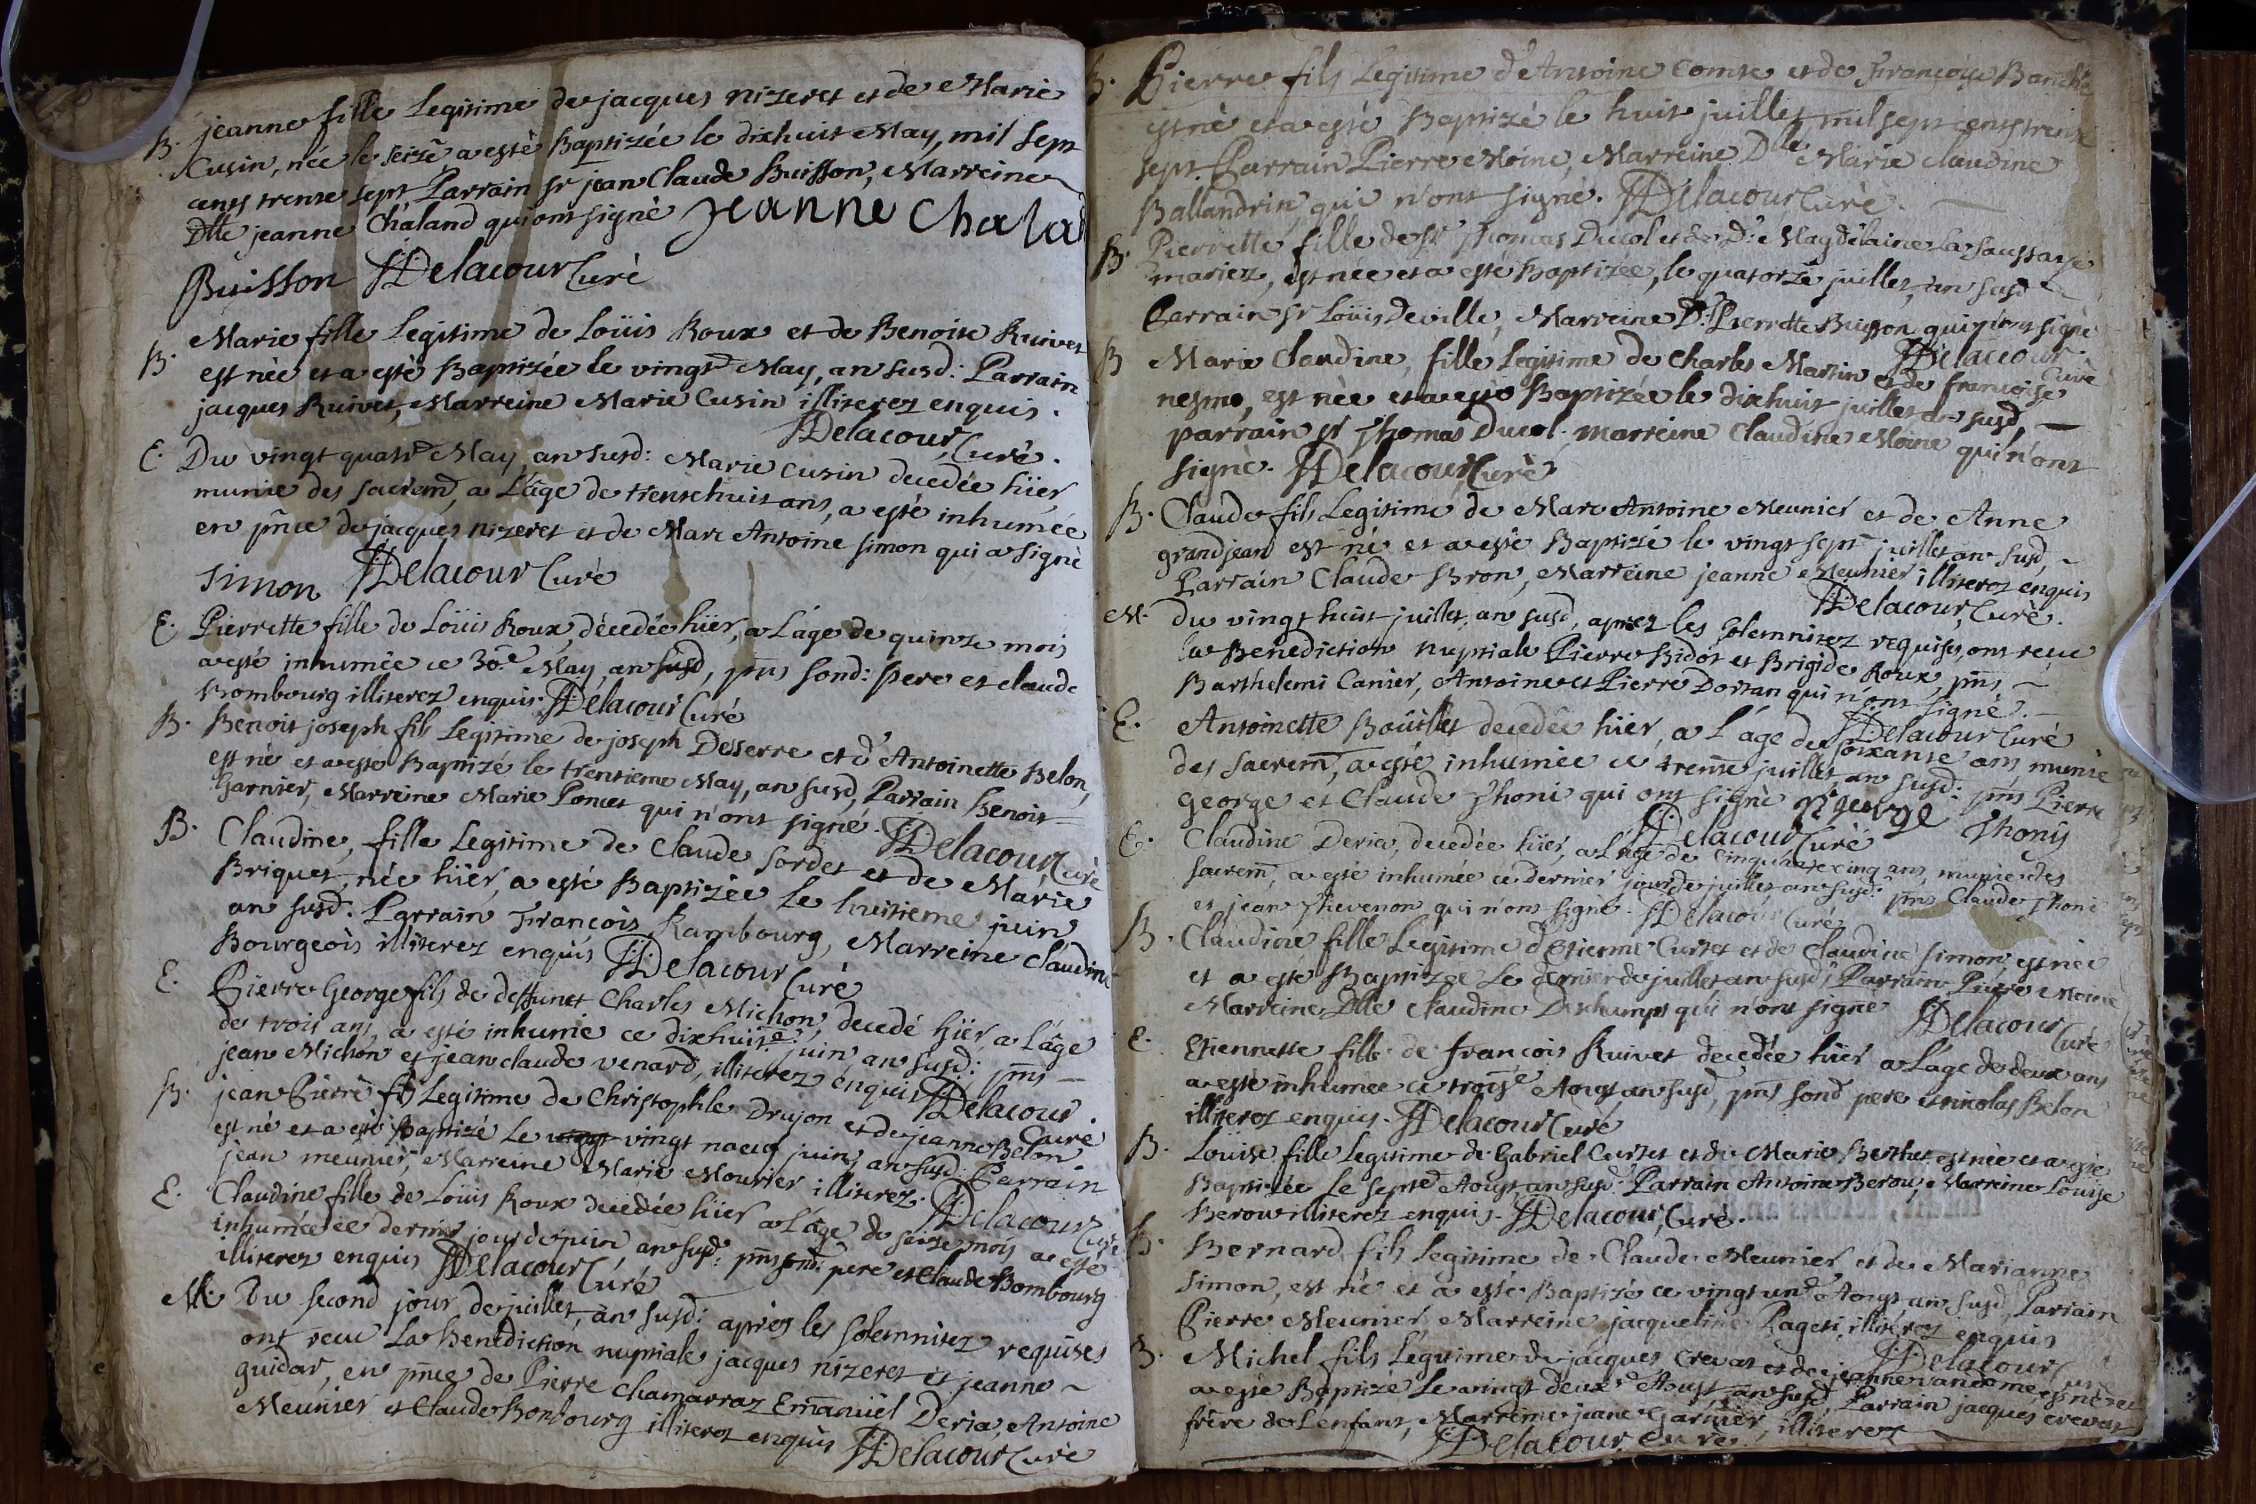 B. jeanne fille Legitime de jacques nizeret et de Marie
Cusin, née le seize a esté Baptizée le dixhuit May, mil sept
cents trente sept, Parrain sr jean Claude Buisson, Marreine
Dlle jeanne Chaland qui ont signè jeanne Chalad
Buisson Delacour Curè
B. Marie fille Legitime de Loüis Roux et de Benoite Ruivet
est née et a estè Baptizée le vingt May, an susd: Parrain
jacques Ruivet, Marreine Marie Cusin illiterez enquis.
Delacour, Curé.
E. Du vingt quatr May, an susd: Marie cusin decedée hïer,
munie des sacrem, a L'âge de trentehuit ans, a esté inhumée
en pnce de jacques nizeret et de Marc Antoine simon qui a signè
simon Delacour Curé
E. Pierrette fille de Loüis Roux, décedée hïer, a L'áge de quinze mois
a esté inhumée ce 30e May, an susd, pns sond: pere et claude
Bombourg illiterez enquis. Delacour Curé
B. Benoit joseph fils Legitime de joseph Desserre et d'Antoinette Belon,
est né et a esté Baptizé le trentieme May, an susd, Parrain Benoit
Garnier, Marreine Marie Poncet qui n'ont signé. Delacour, Curé
B. Claudine, fille Legitime de Claude sordet et de Marie
Briquet, née hïer, a esté Baptizée le huitieme juin
an susd: Parrain François Rambourg, Marreine Claudine
Bourgeois illiterez enquis Delacour Curé
E. Pierre George fils de deffunct Charles Michon, decedé hïer a L'âge
de trois ans, a esté inhumé ce dixhuite juin an susd: pns
jean Michon et jean claude venard, illiterez enquis Delacour
Curé
B. jean Pierre fils Legitime de Christophle Drujon et de jeanne Belon
est né et a esté Baptizé le vingt vingt naeuf juin, an susd: Parrain
jean meunier, Marreine Marie Mourier illiterez. Delacour
Curé
E. Claudine fille de Loüis Roux decedée hïer a L'âge de seize mois a esté
inhumée ce dernier jour de juin an susd: pns sond: pere et Claude Bombourg
illiterez enquis Delacour Curé
M. Du second jour de juillet, an susd: aprés les solemnitez requises
ont receu La benediction nuptiale jacques nizeret et jeanne
guidar, en pnce de Pierre Chamarraz Emanüel Deria, Antoine
Meunier et Claude Bonbourg illiterez enquis Delacour Curé
B. Pierre fils Legitime d'Antoine Comte et de Françoise
est né et a esté Baptizé le huit juillet mil sept cents trente
sept. Parrain Pierre Moine, Marreine Dlle Marie Claudine
Ballandrin, qui n'ont signé. Delacour Curé.
B. Pierrette fille de sr Thomas Ducol et de De Magdelaine la saussaye
mariez, est née et a esté Baptizée, le quatorze juillet, an susd
Parrain sr Loüis Deville, Marreine De Pierrette Buisson qui n'ont signé
Delacour
Curé
B Marie Claudine, fille Legitime de Charles Martin et de françoise
nesme, est née et a esté Baptizée le dixhuit juillet an susd,
parrain sr Thomas Ducol. marreine Claudine Moine qui n'ont
signé. Delacour Curé
B. Claude fils Legitime de Marc Antoine Meunier et de Anne
grandjean est né et a esté Baptizé le vingt sept juillet an susd,
Parrain Claude Bron, Marreine jeanne Meunier illiterez enquis
Delacour, Curé.
M. Du vingt huit juillet, an susd, aprez les solemnitez requises, ont receu
la Benediction nuptiale Pierre Bidot et Brigide Roux, pns
Barthelemi Canier, Antoine et Pierre Dortan qui n'ont signé.
Delacour Curé
E. Antoinette Boüillet decedée hïer, a L'âge de soixante ans, munie
des sacrem, a esté inhumée ce trente juillet, an susd: pns Pierre
George et Claude Thoni qui ont signé P george Thoniy
Delacour Curé
E. Claudine Deria, decedée hïer, a L'áge de cinquante cinq ans, munie des
sacrem, a esté inhumée ce dernier jour de juillet an susd: pns Claude Thoni
et jean Thevenon qui n'ont signé. Delacour Curé
B. Claudine fille Legitime d'Etienne Curtet et de Claudine simon, est née
et a esté Baptizée Le dernier de juillet an susd, Parrain Pierre Moine
Marreine Dlle Claudine Deschamps qui n'ont signé Delacour
Curé
E. Etiennette fille de françois Ruivet decedée hïer a L'áge de deux ans
a esté inhumée ce troise Aoust an susd, pns sond pere et nicolas Belon
illiterez enquis. Delacour Curé
B. Loüise fille Legitime de Gabriel Curtet et de Marie Berthet est née et a esté
Baptizée Le sept Aoust, an susd: Parrain Antoine Berou, Marreine Loüise
Berou illiterez enquis. Delacour, Curé.
B. Bernard fils Legitime de Claude Meunier et de Marianne
simon, est né et a esté Baptizé ce vingt un Aoust, an susd, Parrain
Pierre Meunier, Marreine jacqueline Paget illiterez enquis
Delacour Curé
B. Michel fils Legitime de jacques Crevat et de jeanne vandome est né et
a esté Baptizé Le vingt deux Aoust, an susd, Parrain jacques crevat
frére de L'enfant, Marreine jeane Garnier, illiterez
Delacour Curé.